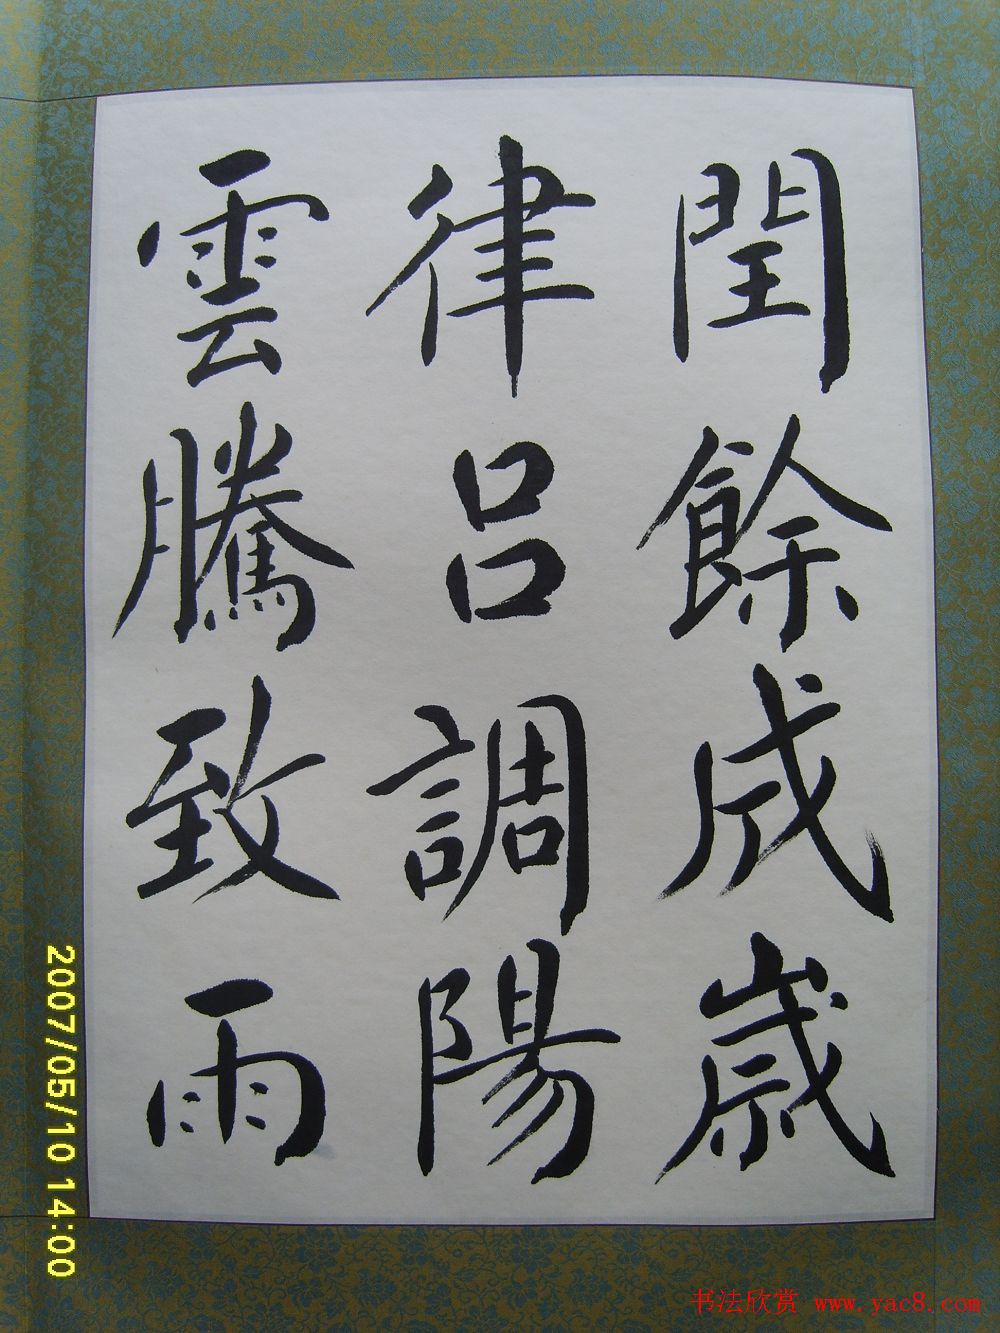 閏餘成歲
律呂調陽
雲騰致雨
2007/05/10 14:00
书法欣赏 www.yac8.com